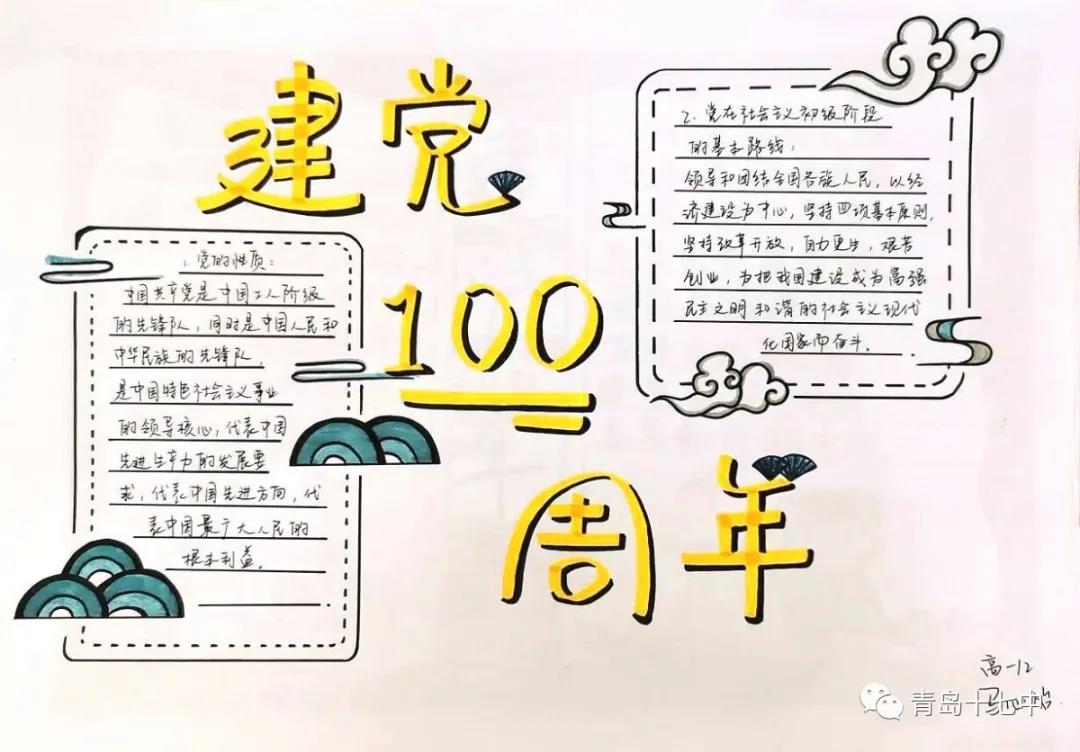 建党
100
周年
1. 党的性质：
中国共产党是中国工人阶级
的先锋队，同时是中国人民和
中华民族的先锋队，
是中国特色社会主义事业
的领导核心，代表中国
先进生产力的发展要
求，代表中国先进方向，代
表中国最广大人民的
根本利益。
2. 党在社会主义初级阶段
的基本路线：
领导和团结全国各族人民，以经
济建设为中心，坚持四项基本原则，
坚持改革开放，自力更生，艰苦
创业，为把我国建设成为富强
民主文明和谐的社会主义现代
化国家而奋斗。
高一12
青岛十七中